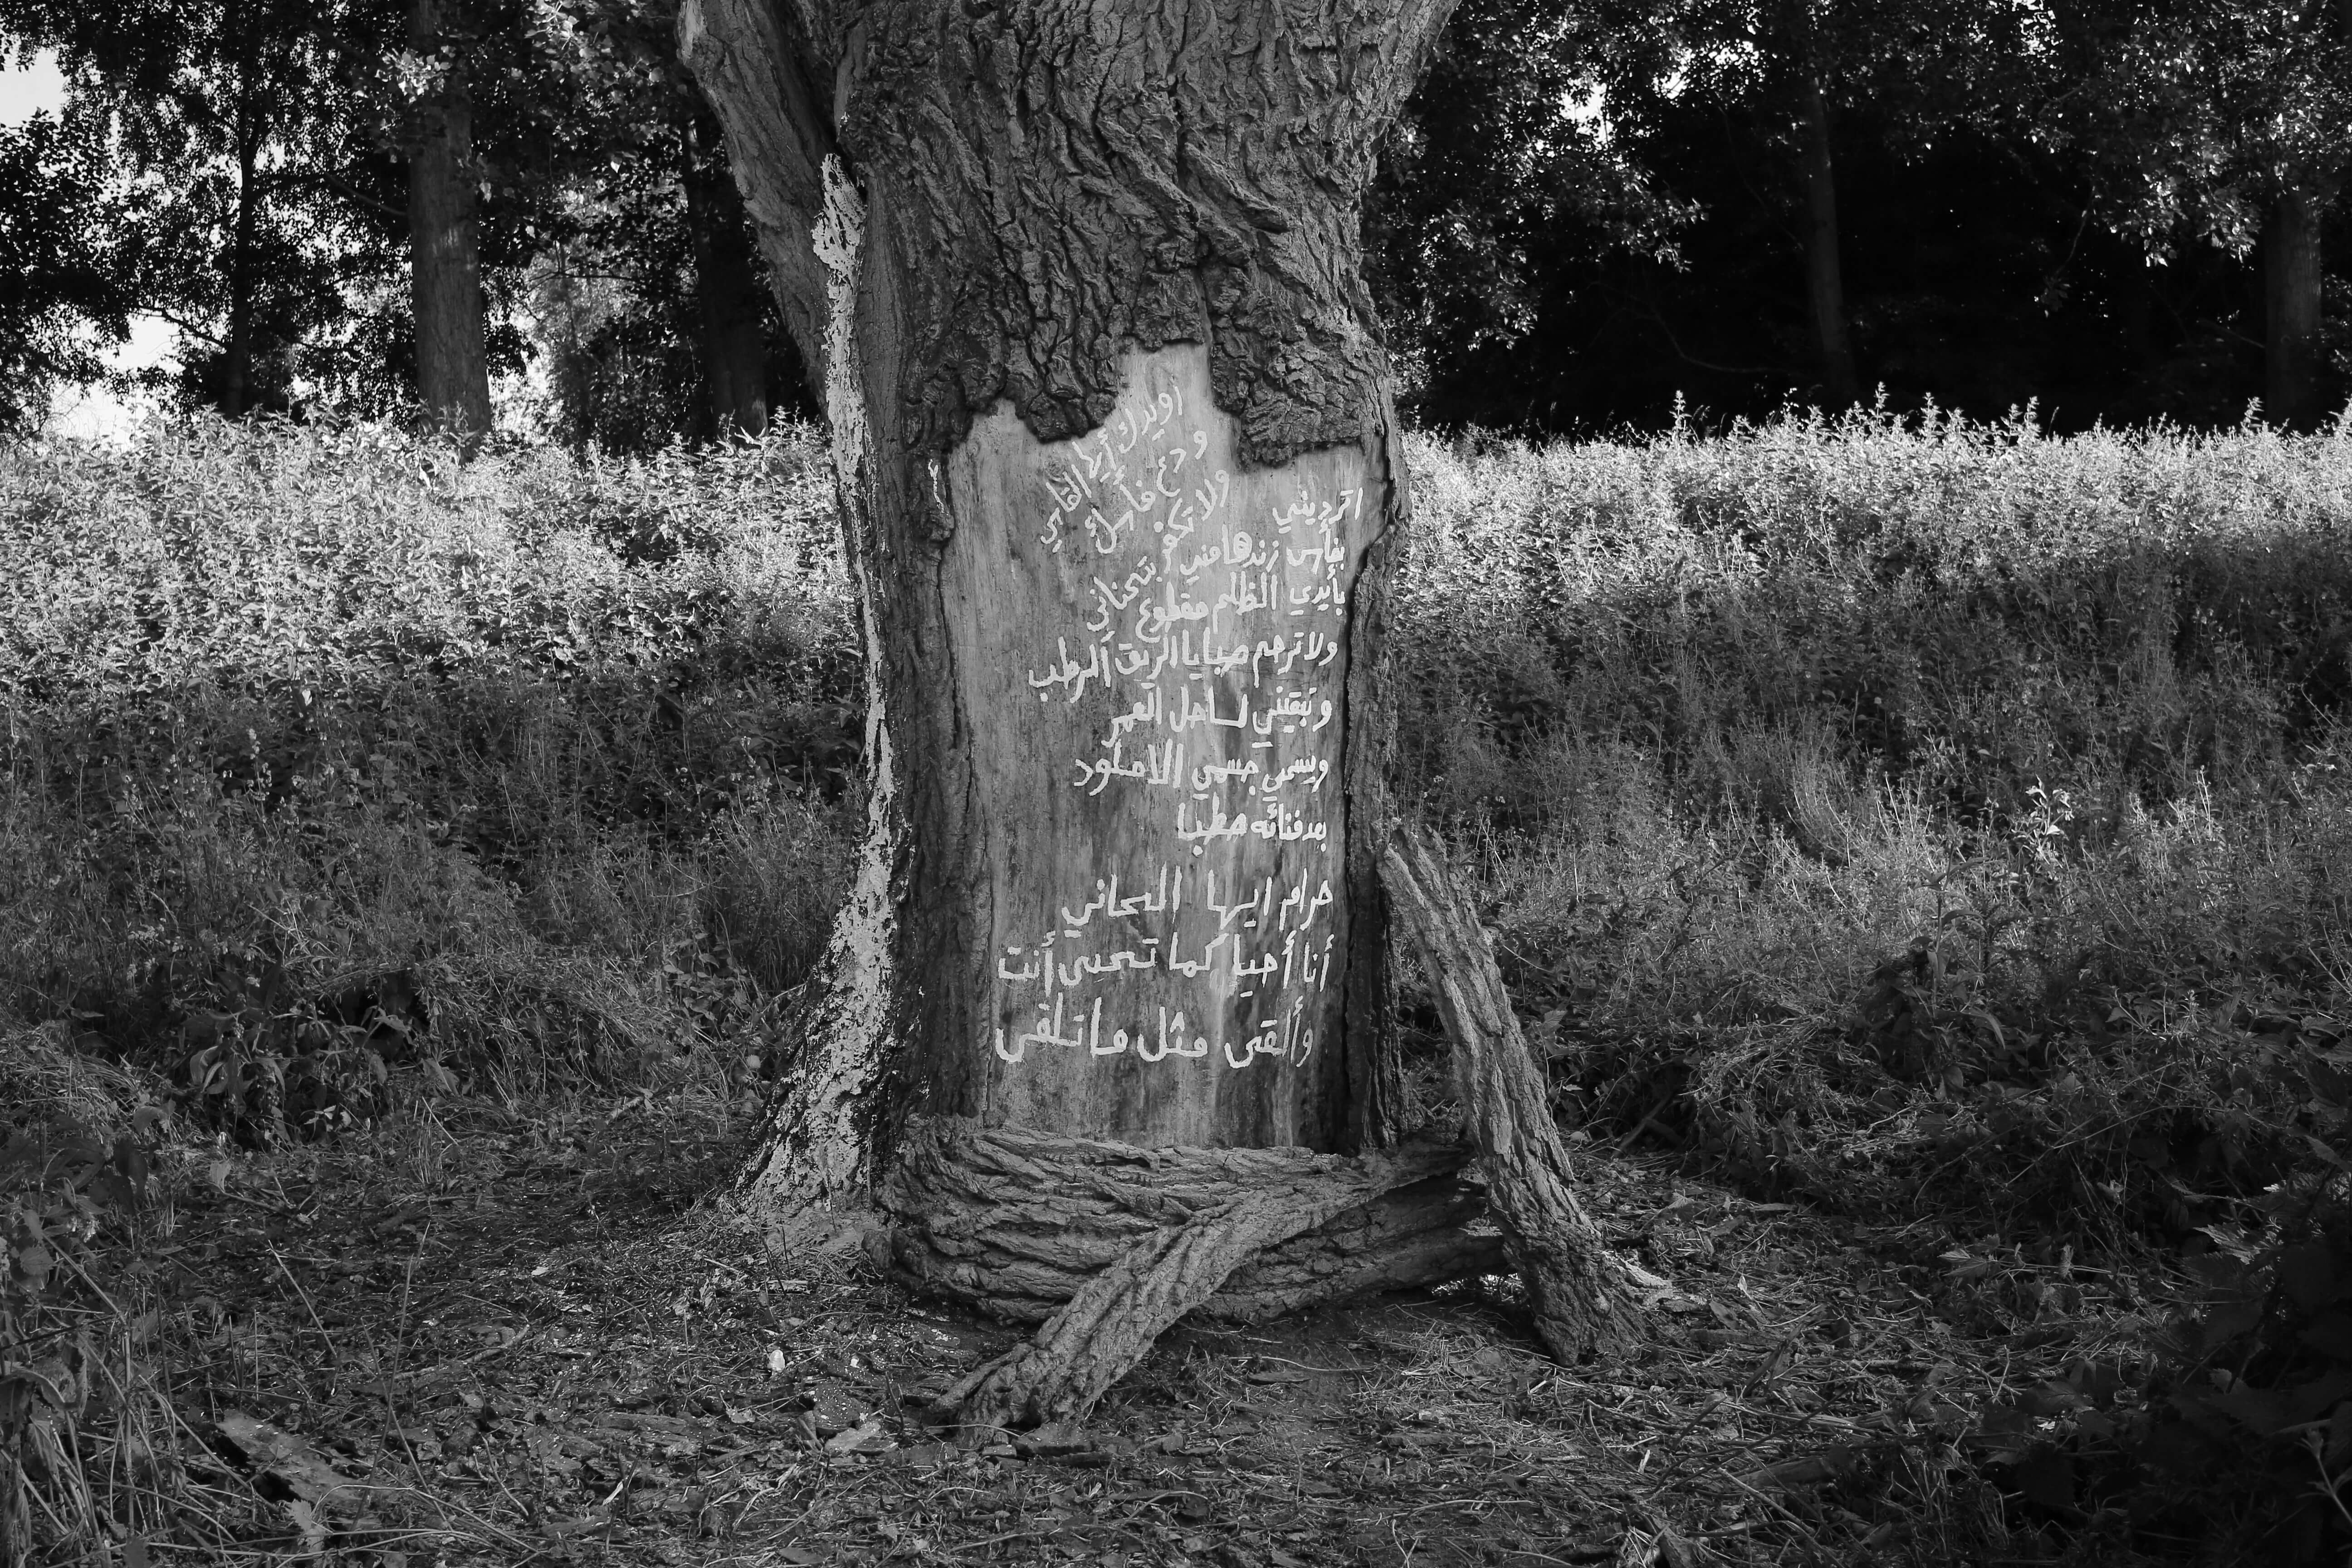 رويدك أيها القاسي
ودع فأسك
ولا تكفر بتحناني
اترديني
بفأس زندها مني
بأيدي الظلم مقطوع
ولا ترحم صبايا الريق الرطب
وتبقني لساحل العمر
ويسمي جسمي الاملود
بعد فنائه حطبا
حرام ايها الجاني
أنا أحيا كما تحيى أنت
وألقى مثل ما تلقى